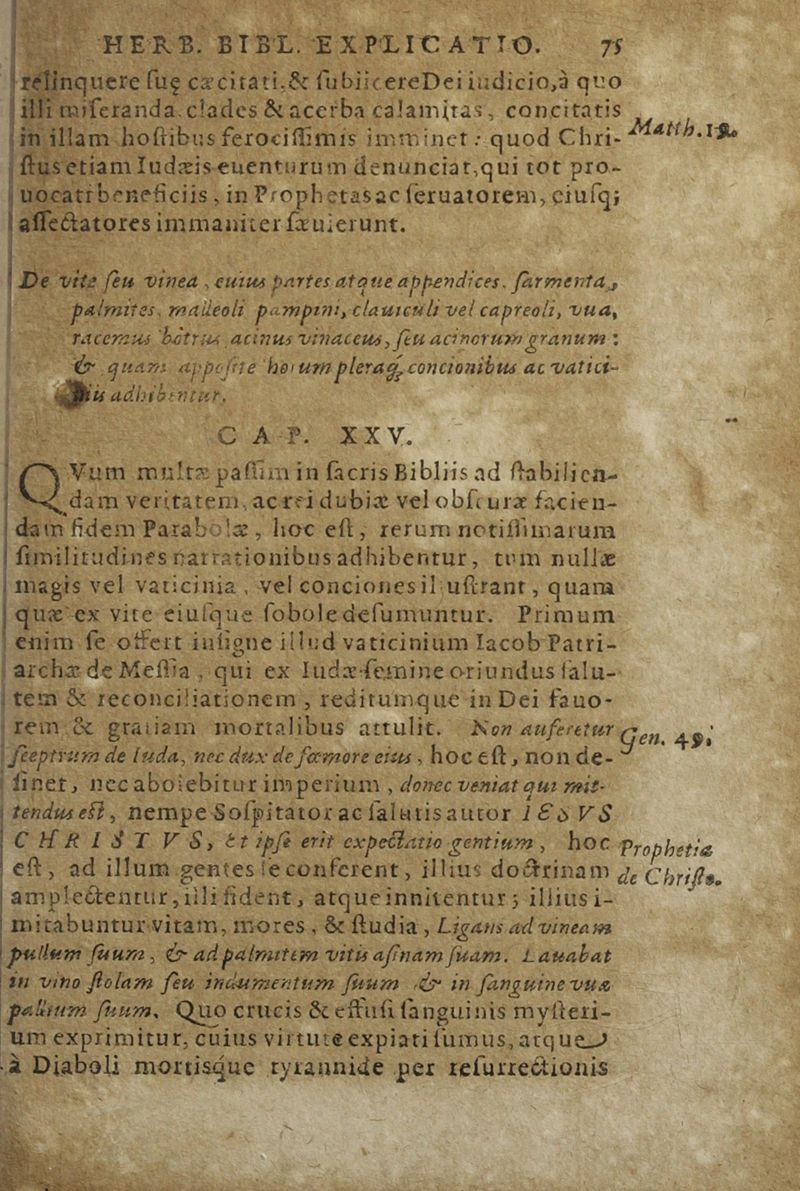 HERB. BIBL. EXPLICATIO. 75
relinquere suę cæcitati,& subiicereDei iudicio,à quo
illi miseranda clades & acerba calamitas, concitatis
in illam hostibus ferocissimis imminet: quod Chri-
stus etiam Iudæis euenturum denunciat,qui tot pro-
uocati beneficiis, in Prophetas ac seruatorem, eiusq;
assectatores immaniter sæuierunt.
Matth.
De vite seu vinea, cuius partes atque appendices, sarmenta,
palmites, malleoli pampini, clauiculi vel capreoli, vua,
racemus botrus acinus vinaceus, seu acinorum granum:
& quam apposite horum pleraq; concionibus ac vatici-
adhibentur.
CAP. XXV.
QVum multæ passim in sacris Bibliis ad stabilien-
dam veritatem, ac rei dubiæ vel obscuræ facien-
dam fidem Parabolæ, hoc est, rerum notissimarum
similitudines narrationibus adhibentur, tum nullæ
magis vel vaticinia, vel conciones illustrant, quam
quæ ex vite eiusque sobole desumuntur. Primum
enim se offert insigne illud vaticinium Iacob Patri-
archæ de Messia, qui ex Iudæ semine oriundus salu-
tem & reconciliationem, reditumque in Dei fauo-
rem & gratiam mortalibus attulit. Non auferetur
Gen. 49.
sceptrum de Iuda, nec dux de fœmore eius, hoc est, non de-
sinet, nec abolebitur imperium, donec veniat qui mit-
tendus est, nempe Sospitator ac salutis autor IESVS
CHRISTVS, et ipse erit expectatio gentium, hoc
Prophetia
de Christo.
est, ad illum gentes se conferent, illius doctrinam
amplectentur, illi fident, atque innitentur; illius i-
mitabuntur vitam, mores, & studia, Ligans ad vineam
pullum suum, & ad palmitem vitis asinam suam. Lauabat
in vino stolam seu indumentum suum & in sanguine vuæ
pallium suum. Quo crucis & effusi sanguinis mysteri-
um exprimitur, cuius virtute expiati sumus, atque
à Diaboli mortisque tyrannide per resurrectionis